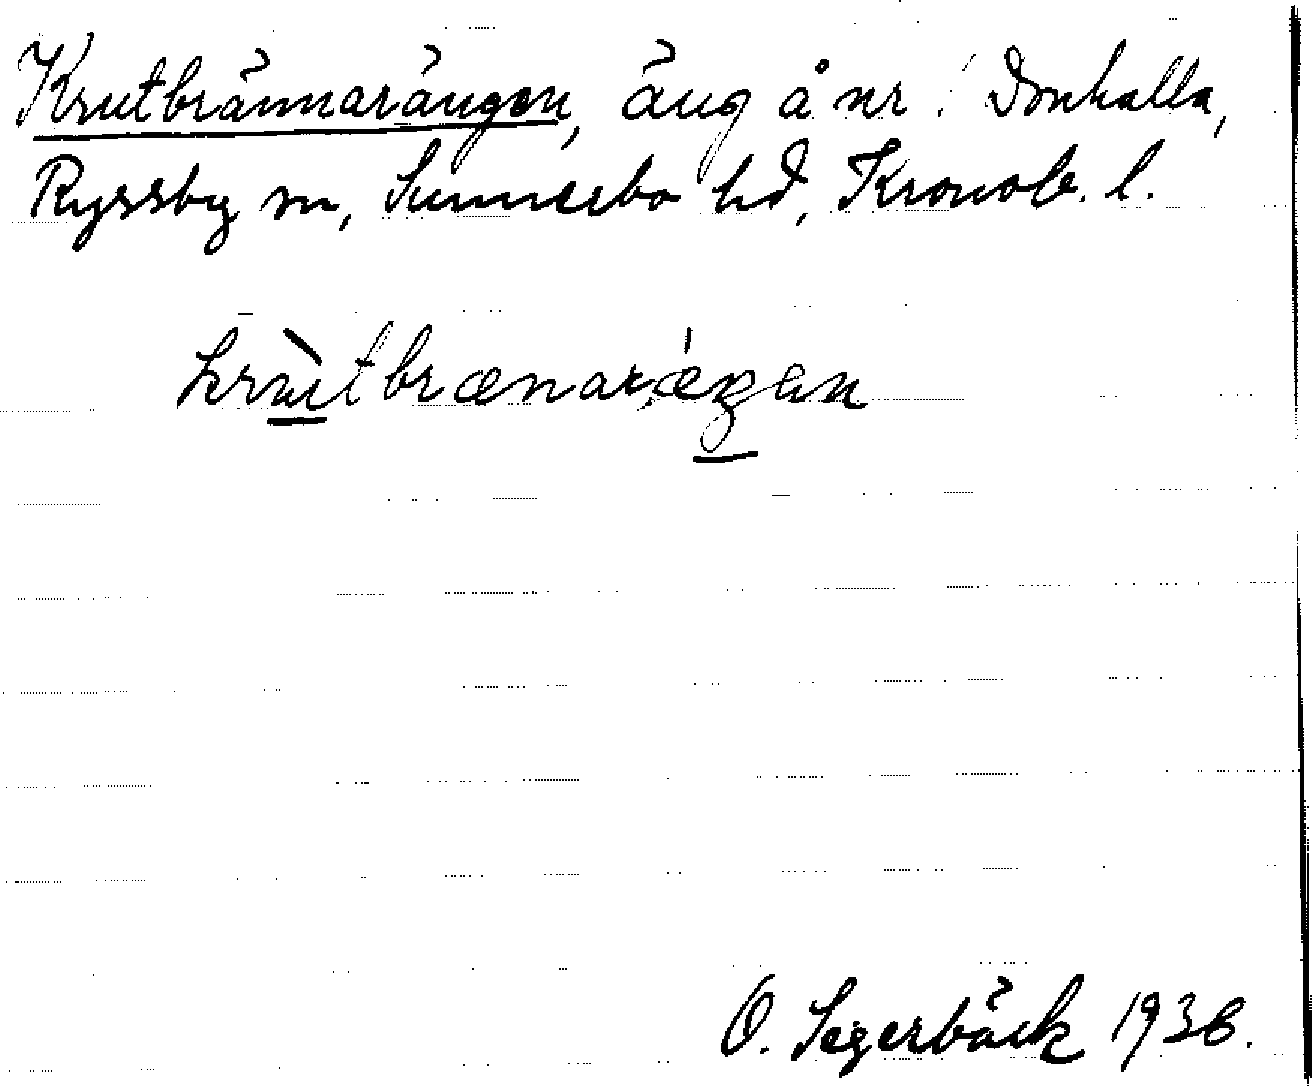 Krutbrännarängen, äng å nr 1 Donhalla,
Ryssby sn, Sunnerbo hd, Kronob. l.
krùtbrænaræ̀ŋen
O. Segerbäck 1936.